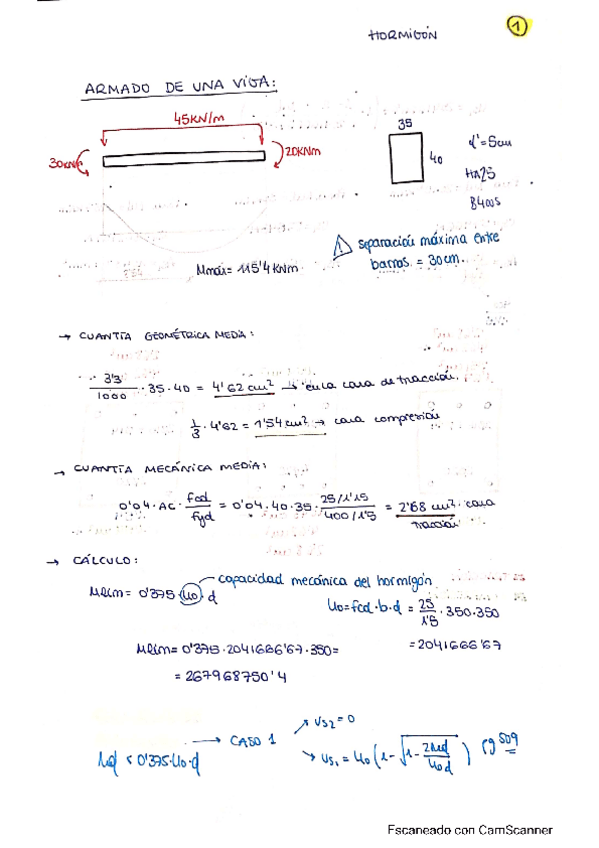 HORMIGÓN 1
ARMADO DE UNA VIGA:
45KN/m
30KNm
20KNm
35
40
d'=5cm
HA25
B400S
Mmáx= 115'4 KNm
! separación máxima entre
barras = 30cm.
→ CUANTÍA GEOMÉTRICA MEDIA:
3'3/1000 · 35 · 40 = 4'62 cm² → en la cara de tracción.
1/3 · 4'62 = 1'54 cm² → cara compresión
→ CUANTÍA MECÁNICA MEDIA:
0'04 · AC · fcd/fyd = 0'04 · 40 · 35 · 25/1'15 / 400/1'5 = 2'68 cm² · cara
tracción
→ CÁLCULO:
Mlím= 0'375 · Uo · d
capacidad mecánica del hormigón
Uo=fcd·b·d = 25/1'5 · 350·350
= 2041666'67
Mlím= 0'375 · 2041666'67 · 350=
= 267968750'4
Md < 0'375·Uo·d → CASO 1
Us2 = 0
Us1 = Uo (1 - √1 - 2Md/Uod) pg 509
Escaneado con CamScanner